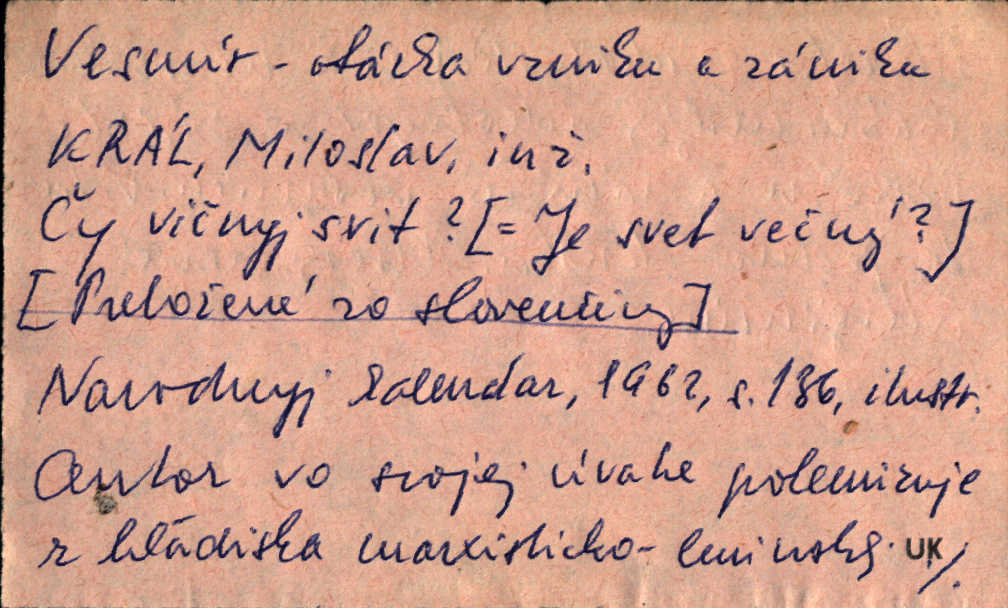 Vesmír - otázka vzniku a zániku
KRÁĹ, Miloslav, inž.
Čy vičnyj svit? [= Je svet večný?]
[Preložené zo slovenčiny]
Narodnyj kalendar, 1962, s. 136, ilustr.
Autor vo svojej úvahe polemizuje
z hľadiska marxisticko-leninský. UK ./.